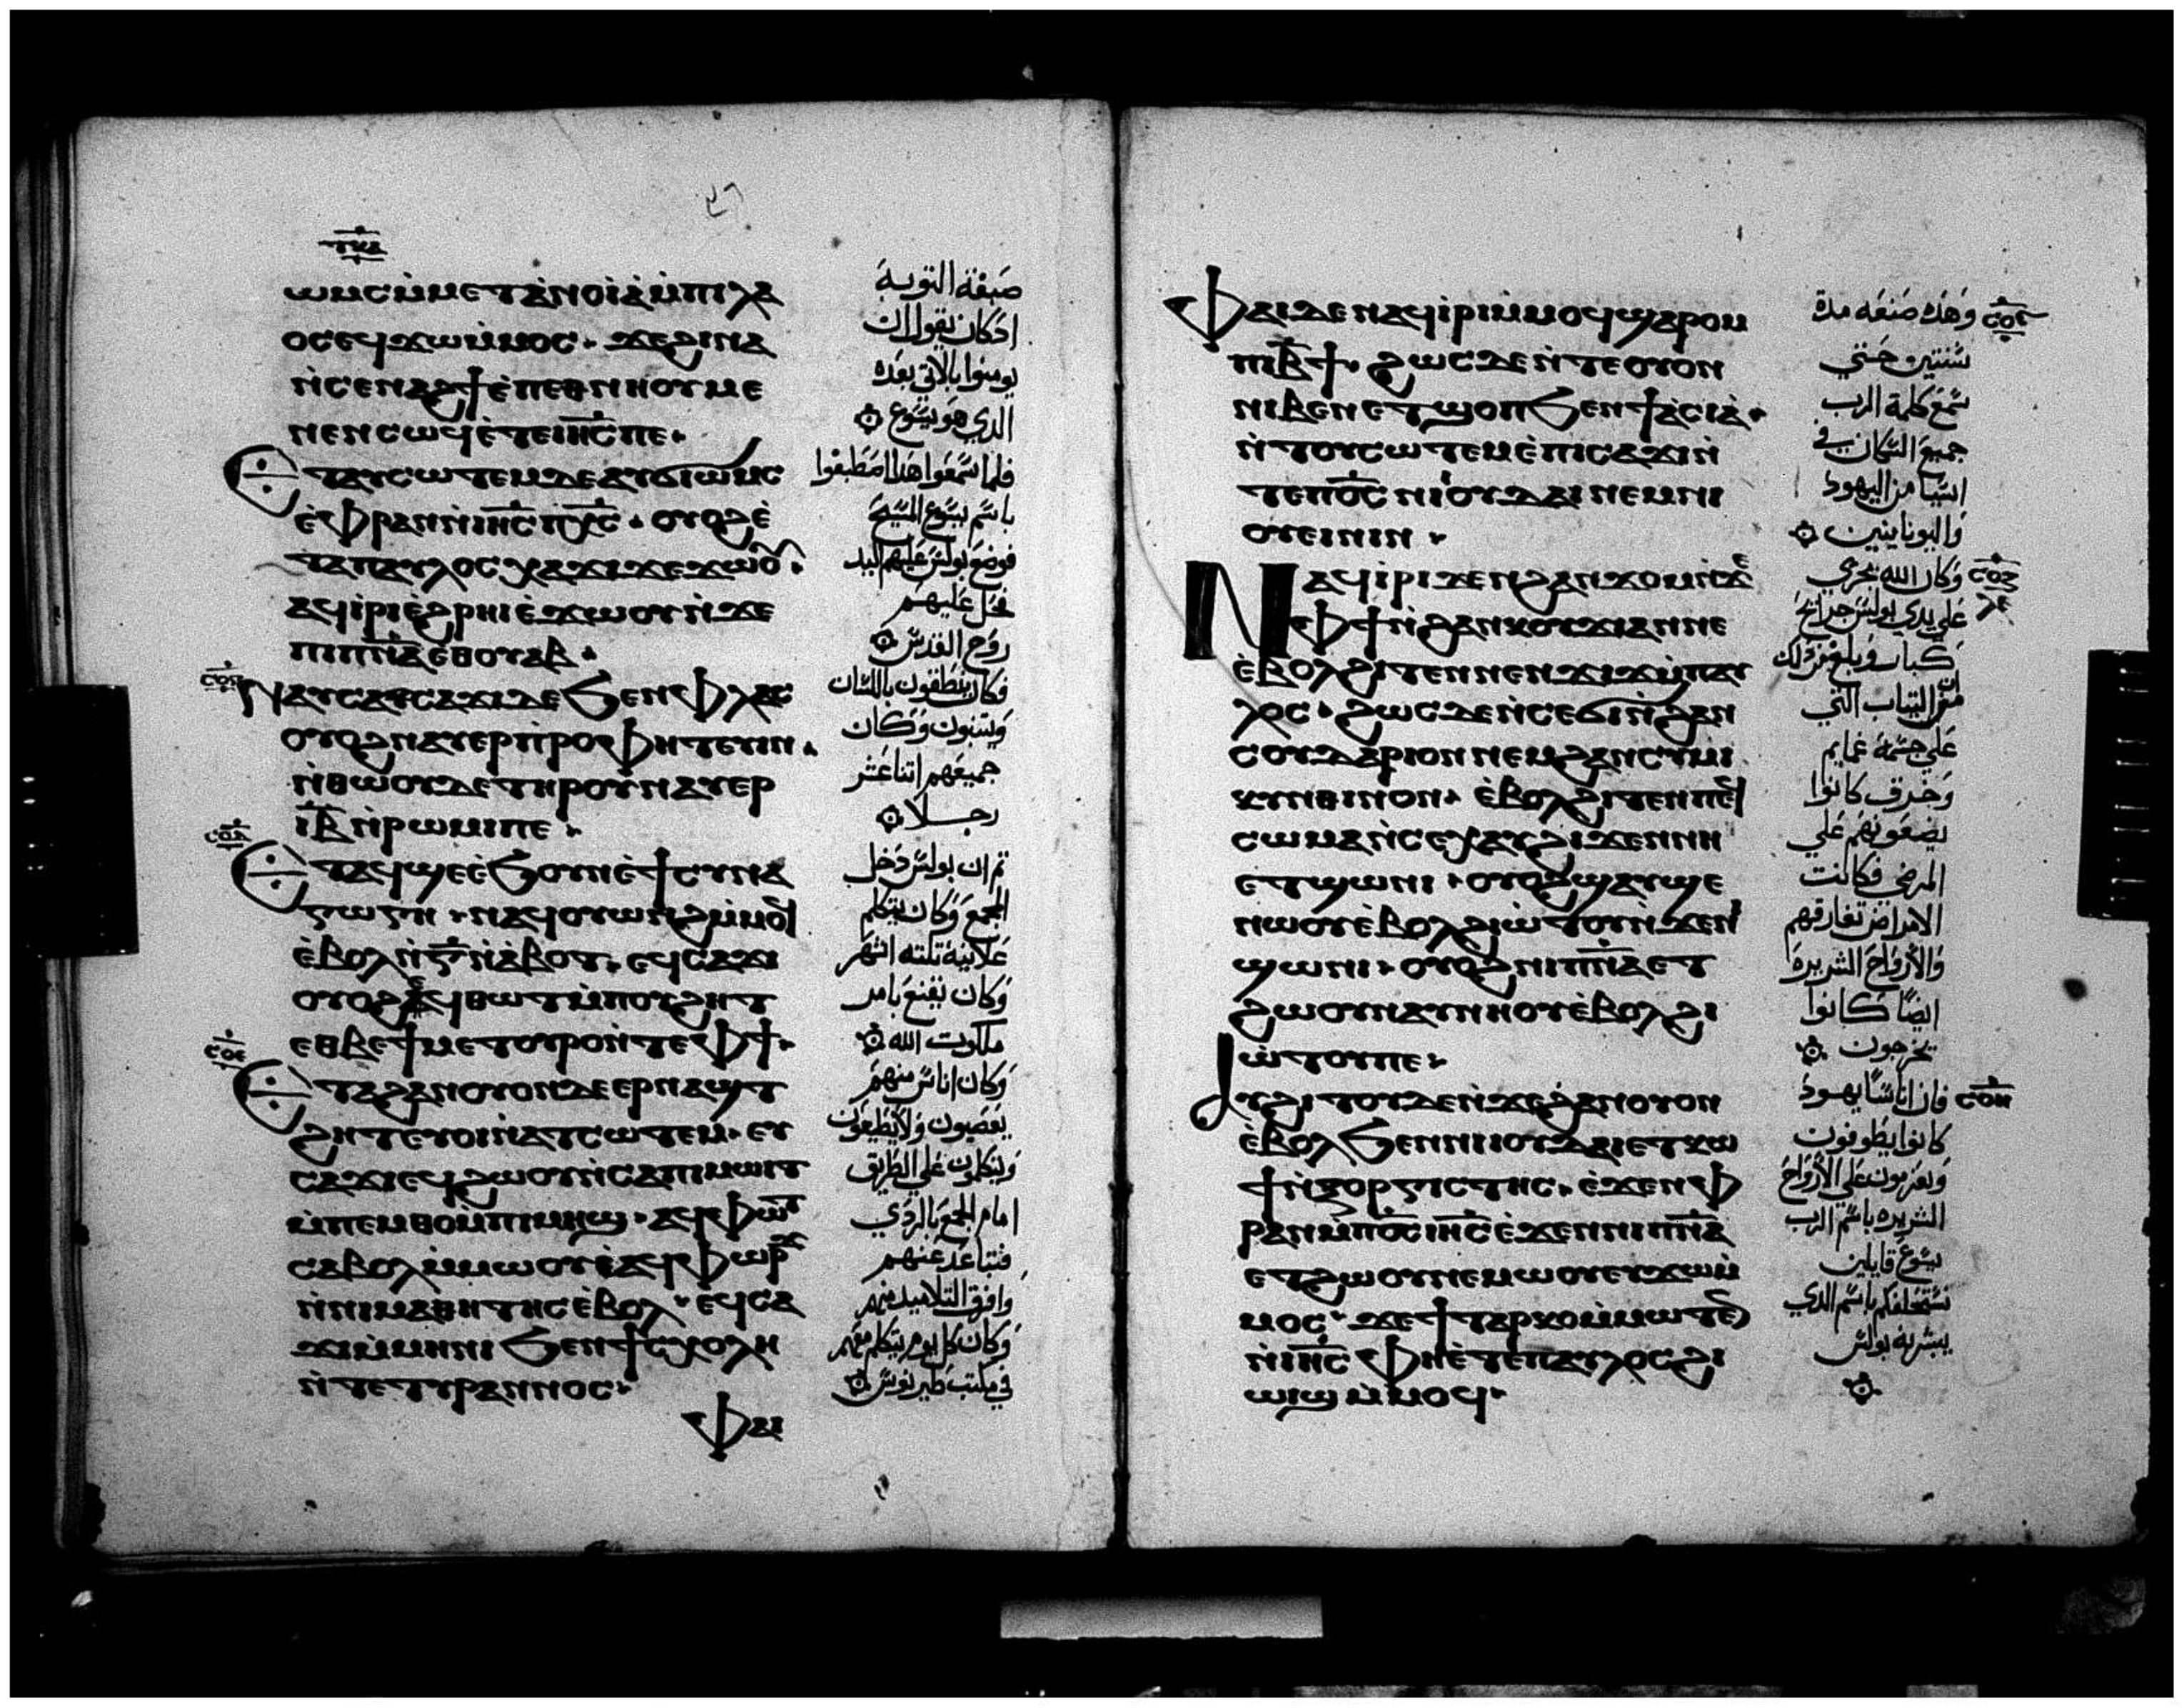 ⲱⲙⲥ ⲙ̇ⲙⲉⲧⲁ̇ⲛⲟⲓⲁ̇ ⲙ̇ⲡⲓⲗⲁ
ⲟⲥ ⲉϥϫⲱ ⲙ̇ⲙⲟⲥ · ϫⲉ ϩⲓⲛⲁ
ⲛ̇ⲥⲉⲛⲁϩϯ ⲉ̇ⲡⲉⲑⲛⲏⲟⲩ ⲙⲉ
ⲛⲉⲛⲥⲱϥ ⲉ̇ⲧⲉ ⲓⲏ̅ⲥ̅ ⲡⲉ ·
Ⲉⲧⲁⲩⲥⲱⲧⲉⲙ ⲇⲉ ⲁⲩϭⲓⲱⲙⲥ
ⲉ̇ⲫⲣⲁⲛ ⲛ̇ⲓⲏ̅ⲥ̅ ⲡⲭ̅ⲥ̅ · ⲟⲩⲟϩ ⲉ̇
ⲧⲁ ⲡⲁⲩⲗⲟⲥ ⲭⲁ ϫⲓϫ ⲉϫⲱⲟⲩ ·
ⲁϥⲓ̇ ⲣⲓⲉ̇ϩⲣⲏⲓ ⲉ̇ϫⲱⲟⲩ ⲛ̇ϫⲉ
ⲡⲓⲡⲛ̅ⲁ̅ ⲉⲑⲟⲩⲁⲃ ·
ⲥⲟⲅ
Ⲛⲁⲩⲥⲁϫⲓ ⲇⲉ ϧⲉⲛ ⲫⲗⲁⲥ
ⲟⲩⲟϩ ⲛⲁⲩⲉⲣⲡ̇ⲣⲟⲫⲏⲧⲉⲩⲓⲛ ·
ⲛ̇ⲑⲱⲟⲩ ⲇⲉ ⲧⲏⲣⲟⲩ ⲛⲁⲩⲉⲣ
ⲓ̅ⲃ̅ ⲛ̇ⲣⲱⲙⲓ ⲡⲉ ·
ⲥⲟⲇ
Ⲉⲧⲁϥϣⲉ ⲉ̇ϧⲟⲩⲛ ⲉ̇ϯⲥⲩⲛⲁ
ⲅⲱⲅⲏ · ⲛⲁϥⲟⲩⲱⲛϩ ⲙ̇ⲙⲟϥ
ⲉ̇ⲃⲟⲗ ⲛ̇ⲅ̅ ⲛ̇ⲁ̇ⲃⲟⲧ · ⲉϥⲥⲁϫⲓ
ⲟⲩⲟϩ ⲉϥⲑⲱⲧ ⲙ̇ⲡⲟⲩϩⲏⲧ
ⲉⲑⲃⲉ ϯⲙⲉⲧⲟⲩⲣⲟ ⲛ̇ⲧⲉ ⲫϯ ·
ⲥⲟⲉ
Ⲉⲧⲁ ϩⲁⲛⲟⲩⲟⲛ ⲇⲉ ⲉⲣⲛⲁϣⲧ
ϩⲏⲧ ⲉⲩⲟⲓ ⲛ̇ⲁⲧⲥⲱⲧⲉⲙ · ⲉⲩ
ⲥⲁϫⲓ ⲉϥϩⲱⲟⲩ ⲛ̇ⲥⲁ ⲡⲓⲙⲱⲓⲧ
ⲙ̇ⲡⲉⲙⲑⲟ ⲙ̇ⲡⲓⲙⲏϣ · ⲁϥⲫⲱⲧ
ⲥⲁⲃⲟⲗ ⲙ̇ⲙⲱⲟⲩ ⲁϥⲫⲱⲣϫ
ⲛ̇ⲛⲓⲙⲁⲑⲏⲧⲏⲥ ⲉ̇ⲃⲟⲗ · ⲉϥⲥⲁ
ϫⲓ ⲙ̇ⲙⲏⲛⲓ ϧⲉⲛ ϯⲥⲭⲟⲗⲏ
ⲛ̇ⲧⲉ ⲧⲩⲣⲁⲛⲛⲟⲥ ·
ⲫⲁⲓ
صبغة التوبة
اذ كان يقول ان
يومنوا بالاتي بعده
الدي هو يسوع
فلما سمعوا هدا اصطبغوا
باسم يسوع المسيح
فوضع بولس عليهم اليد
فحل عليهم
روح القدس
فكانوا ينطقون باللسان
ويتنبون وكان
جميعهم اتنا عشر
رجلا
تم ان بولس دخل
المجمع وكان يتكلم
علانية تلته اشهر
وكان يقنع بامر
ملكوت الله
وكان اناس منهم
يعصون ولا يطيعون
ويتكلمون علي الطريق
امام الجمع بالردي
فتباعد عنهم
وافرق التلاميد منهم
وكان كل يوم يتكلم معهم
في مكتب طيرنوس
Ⲫⲁⲓ ⲇⲉ ⲛⲁϥⲓ̇ⲣⲓ ⲙ̇ⲙⲟϥ ϣⲁ ⲣⲟⲙ
ⲡⲓ ⲃ̅ϯ · ϩⲱⲥⲇⲉ ⲛ̇ⲧⲉ ⲟⲩⲟⲛ
ⲛⲓⲃⲉⲛ ⲉⲧϣⲟⲡ ϧⲉⲛ ϯⲁ̇ⲥⲓⲁ̇ ·
ⲛ̇ⲧⲟⲩⲥⲱⲧⲉⲙ ⲉ̇ⲡⲓⲥⲁϫⲓ ⲛ̇
ⲧⲉ ⲡⲟ̅ⲥ̅ ⲛⲓⲟⲩⲇⲁⲓ ⲛⲉⲙ ⲛⲓ
ⲟⲩⲉⲓⲛⲓⲛ ·
Ⲛⲁϥⲓ̇ⲣⲓ ⲇⲉ ⲛ̇ϩⲁⲛϫⲟⲙ ⲛ̇ϫⲉ
ⲫϯ ⲛ̇ϩⲁⲛⲕⲟⲩϫⲓ ⲁⲛ ⲛⲉ
ⲉ̇ⲃⲟⲗ ϩⲓⲧⲉⲛ ⲛⲉⲛϫⲓϫ ⲙ̇ⲡⲁⲩ
ⲗⲟⲥ · ϩⲱⲥⲇⲉ ⲛ̇ⲥⲉϭⲓ ⲛ̇ϩⲁⲛ
ⲥⲟⲩⲇⲁⲣⲓⲟⲛ ⲛⲉⲙ ϩⲁⲛⲥⲩⲙⲓ
ⲕⲩⲛⲑⲓⲛⲟⲛ · ⲉ̇ⲃⲟⲗ ϩⲓⲧⲉⲛ ⲡⲉϥ
ⲥⲱⲙⲁ ⲛ̇ⲥⲉⲭⲁⲩ ϩⲓϫⲉⲛ ⲛⲏ
ⲉⲧϣⲱⲛⲓ · ⲟⲩⲟϩ ϣⲁⲩϣⲉ
ⲛⲱⲟⲩ ⲉ̇ⲃⲟⲗ ϩⲓⲱ̇ⲧⲟⲩ ⲛ̇ϫⲉ ⲛⲓ
ϣⲱⲛⲓ · ⲟⲩⲟϩ ⲛⲓⲡⲛ̅ⲁ̅ ⲉⲧ
ϩⲱⲟⲩ ⲛⲁⲩⲛⲏⲟⲩ ⲉ̇ⲃⲟⲗ ϩⲓ
ⲱ̇ⲧⲟⲩ ⲡⲉ ·
Ⲁⲩϩⲓⲧⲟⲧⲟⲩ ⲇⲉ ⲛ̇ϫⲉ ϩⲁⲛⲟⲩⲟⲛ
ⲉ̇ⲃⲟⲗ ϧⲉⲛ ⲛⲓⲓⲟⲩⲇⲁⲓ ⲉⲧⲕⲱ
ϯ ⲛ̇ⲝⲟⲣⲅⲓⲥⲧⲏⲥ · ⲉ̇ϫⲉⲛ ⲫ
ⲣⲁⲛ ⲙ̇ⲡⲟ̅ⲥ̅ ⲓⲏ̅ⲥ̅ ⲉ̇ϫⲉⲛ ⲛⲓⲡⲛ̅ⲁ̅
ⲉⲧϩⲱⲟⲩ ⲛⲉⲙⲱⲟⲩ ⲉⲩϫⲱ ⲙ̇
ⲙⲟⲥ · ϫⲉ ϯⲧⲁⲣⲕⲟ ⲙ̇ⲙⲱⲧⲉⲛ
ⲛ̇ⲓⲏ̅ⲥ̅ ⲫⲏ ⲉ̇ⲧⲉ ⲡⲁⲩⲗⲟⲥ ϩⲓ
ⲱⲓϣ ⲙ̇ⲙⲟϥ ·
ⲥⲟⲋ
وهده صنعه مدة
سنتين حتي
سمع كلمة الرب
جميع السكان في
اسيا من اليهود
واليونانيين
ⲥⲟⲍ
وكان الله يجري
علي يدي بولس جرايح
كبار وبلغ من دلك
ان من التياب التي
علي جسمه عمايم
وخرق كانوا
يضعونهم علي
المرضي فكانت
الامراض تفارقهم
والارواح الشريرة
ايضا كانوا
يخرجون
ⲥⲟⲏ
فان اناسا يهود
كانوا يطوفون
ويعزمون علي الارواح
الشريرة باسم الرب
يسوع قايلين
نستحلفكم باسم الدي
يبشر به بولس